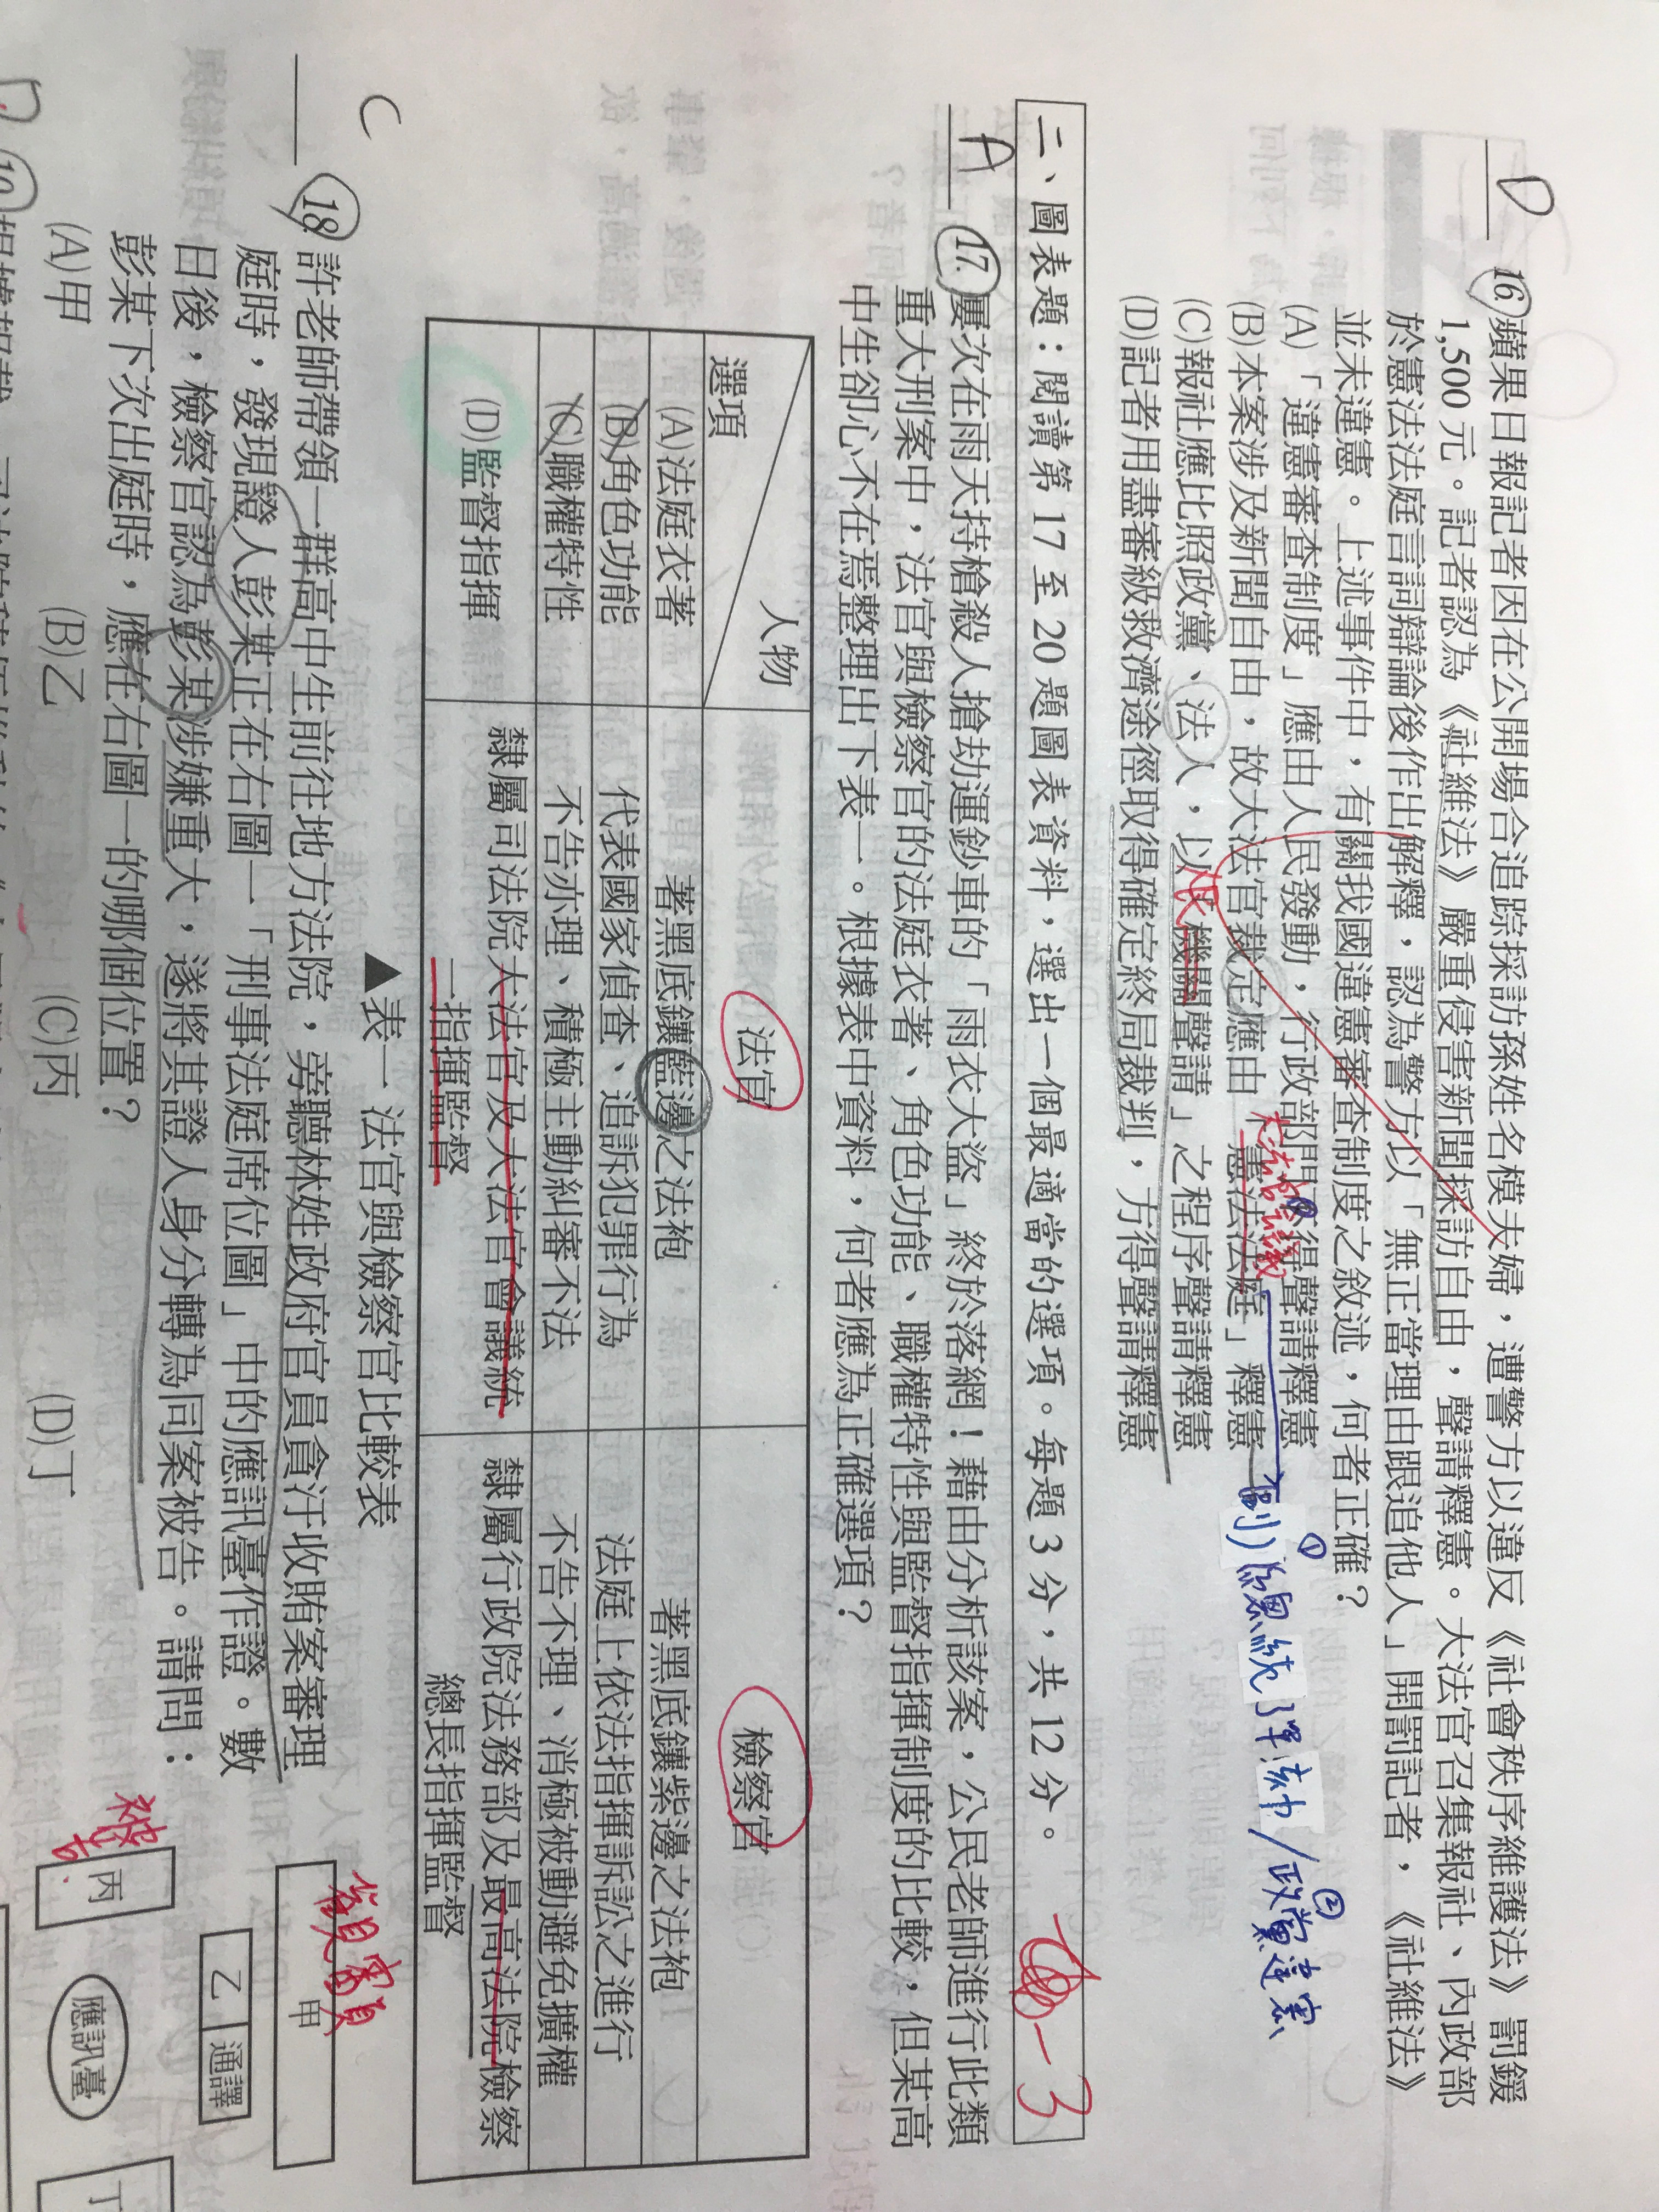 D
16.蘋果日報記者因在公開場合追踪採訪孫姓名模夫婦，遭警方以違反《社會秩序維護法》罰鍰
1,500 元。記者認為《社維法》嚴重侵害新聞採訪自由，聲請釋憲。大法官召集報社、內政部
於憲法法庭言詞辯論後作出解釋，認為警方以「無正當理由跟追他人」開罰記者，《社維法》
並未違憲。上述事件中，有關我國違憲審查制度之敘述，何者正確？
(A)「違憲審查制度」應由人民發動，行政部門不得聲請釋憲
(B)本案涉及新聞自由，故大法官裁定應由「憲法法庭」釋憲
大法官會議
例)①總統彈劾/②政黨違憲
(C)報社應比照政黨、法人，以「機關聲請」之程序聲請釋憲
人民
(D)記者用盡審級救濟途徑取得確定終局裁判，方得聲請釋憲
二、圖表題：閱讀第 17 至 20 題圖表資料，選出一個最適當的選項。每題 3 分，共 12 分。
-3
A
17.屢次在雨天持槍殺人搶劫運鈔車的「雨衣大盜」終於落網！藉由分析該案，公民老師進行此類
重大刑案中，法官與檢察官的法庭衣著、角色功能、職權特性與監督指揮制度的比較，但某高
中生卻心不在焉整理出下表一。根據表中資料，何者應為正確選項？
人物
選項
法官
檢察官
(A)法庭衣著
著黑底鑲藍邊之法袍
著黑底鑲紫邊之法袍
(B)角色功能
代表國家偵查、追訴犯罪行為
法庭上依法指揮訴訟之進行
(C)職權特性
不告亦理、積極主動糾審不法
不告不理、消極被動避免擴權
(D)監督指揮
隸屬司法院大法官及大法官會議統
一指揮監督
隸屬行政院法務部及最高法院檢察
總長指揮監督
▲表一　法官與檢察官比較表
C
18.許老師帶領一群高中生前往地方法院，旁聽林姓政府官員貪汙收賄案審理
庭時，發現證人彭某正在右圖一「刑事法庭席位圖」中的應訊臺作證。數
日後，檢察官認為彭某涉嫌重大，遂將其證人身分轉為同案被告。請問：
彭某下次出庭時，應在右圖一的哪個位置？
(A)甲
(B)乙
(C)丙
(D)丁
甲
乙
通譯
被告
丙
應訊臺
丁
D
19.